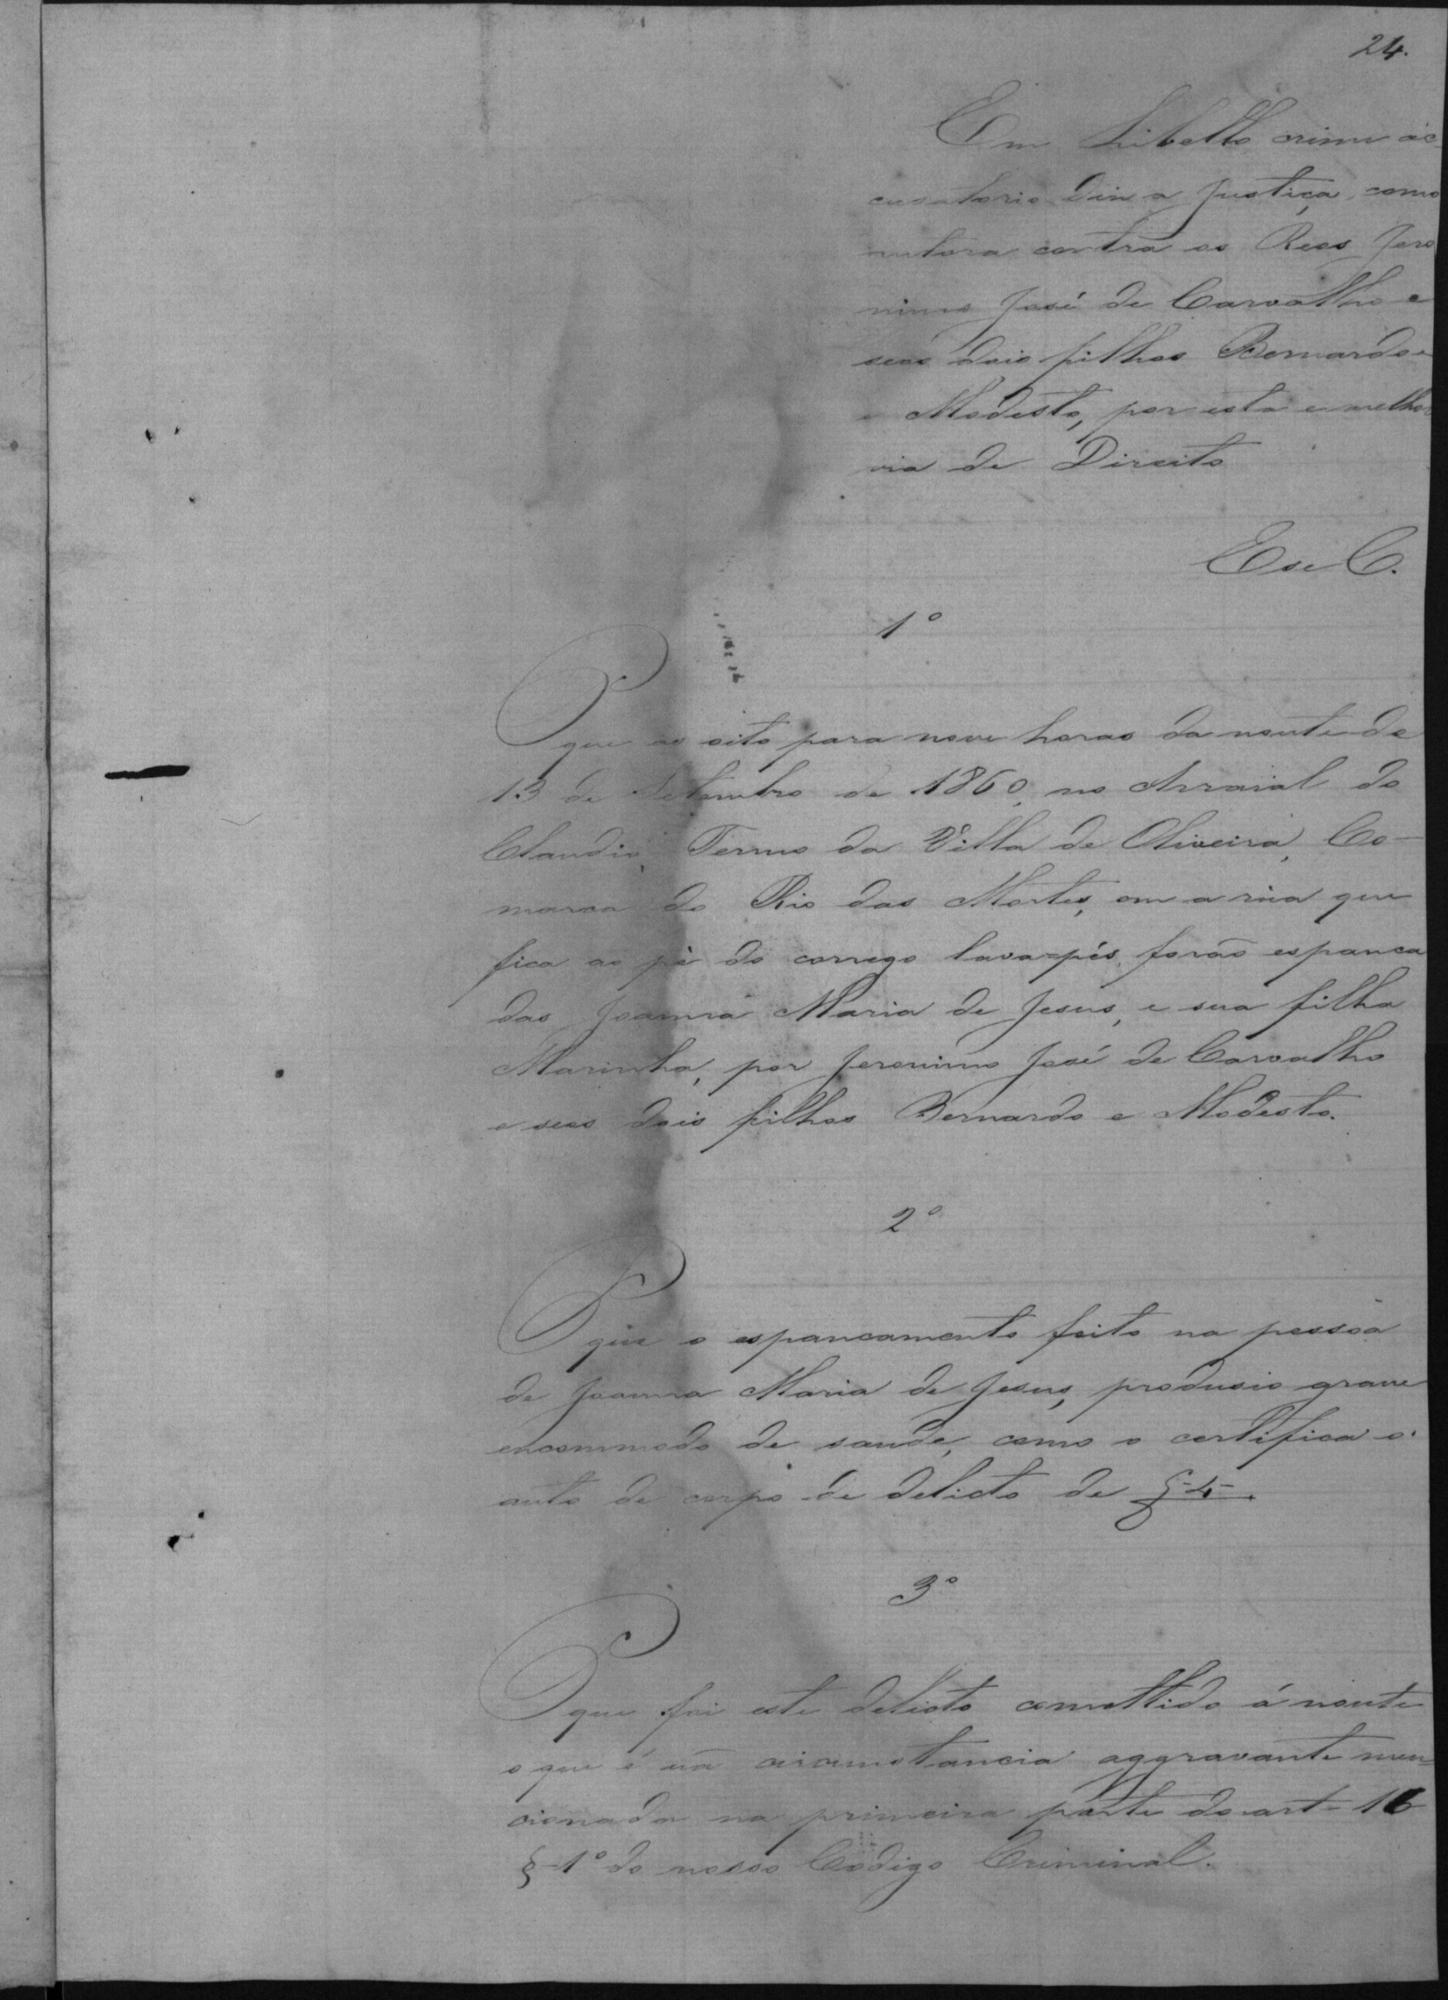 24.
Em Libello crime ac-
cusatorio diz a Justiça, como
autora contra os Reos Jero
nimo José de Carvalho e
seos dois filhos Bernardo e
e Modesto, por esta e melhor
via de Direito
E se C.
1º
P que as oito para nove horas da noute de
13 de Setembro de 1860, no Arraial do
Claudio, Termo da Villa de Oliveira, Co-
marca do Rio das Mortes, em a rua que
fica ao pé do corrego lava-pés, forão espanca
das Joanna Maria de Jesus, e sua filha
Marinha, por Jeronimo José de Carvalho
e seos dois filhos Bernardo e Modesto.
2º
P que o espancamento feito na pessoa
de Joanna Maria de Jesus, produsio grave
encommodo de saude, como o certifica o
auto de corpo de delicto de f-4-.
3º
P que foi este delicto comettido á noute
o que é uã circunstancia aggravante men-
cionada na primeira parte do art-16
§-1º do nosso Codigo Criminal.